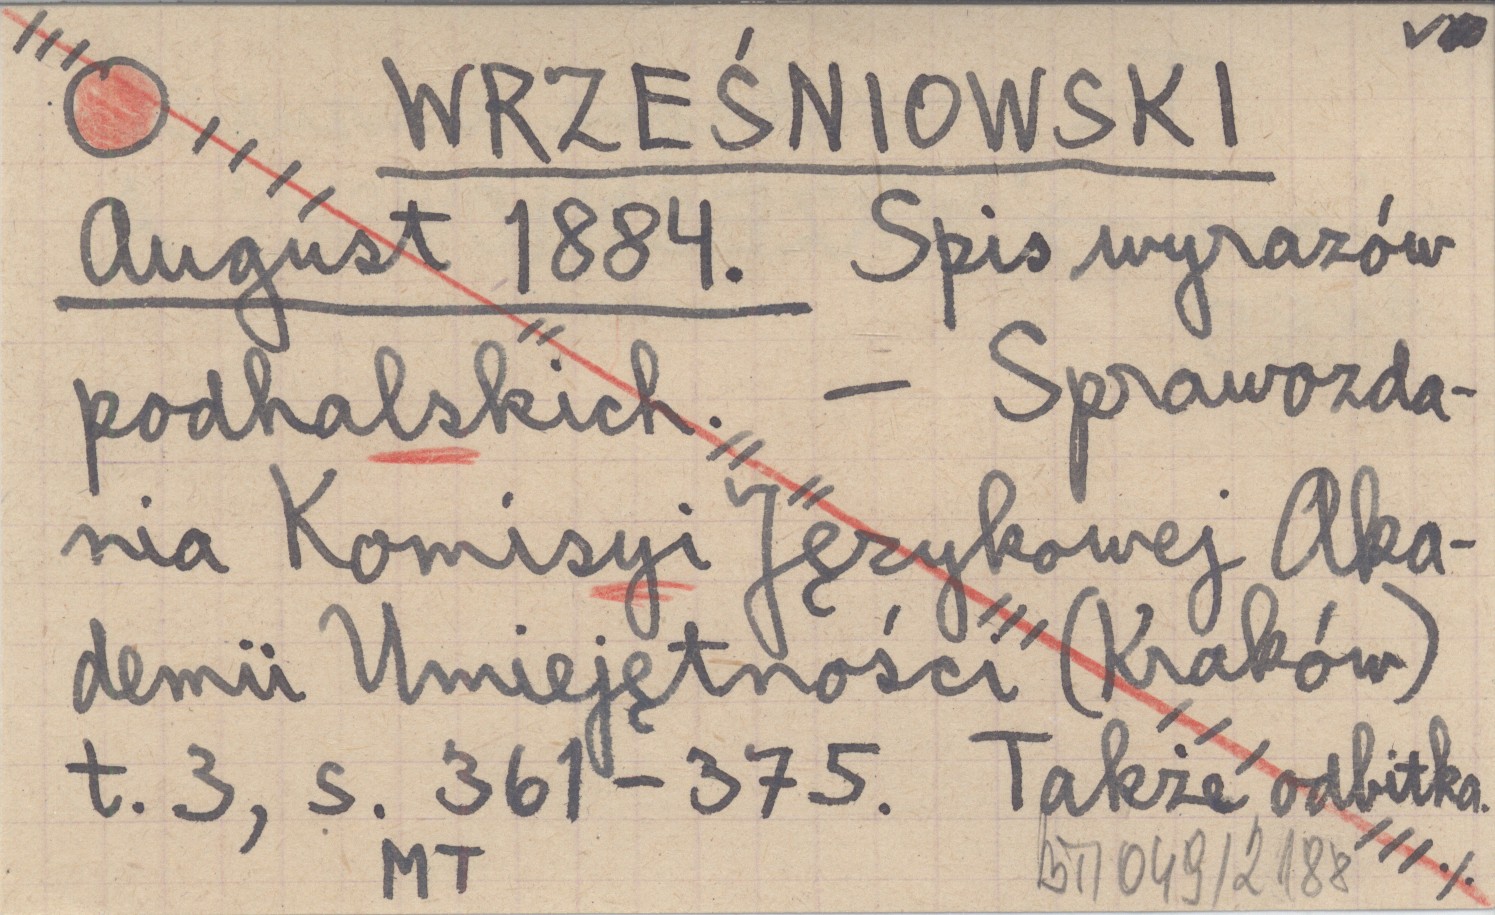 WRZEŚNIOWSKI
August 1884. Spis wyrazów
podhalskich. — Sprawozda-
nia Komisyi Językowej Aka-
demii Umiejętności (Kraków)
t. 3, s. 361-375. Także odbitka.
MT
049/2188